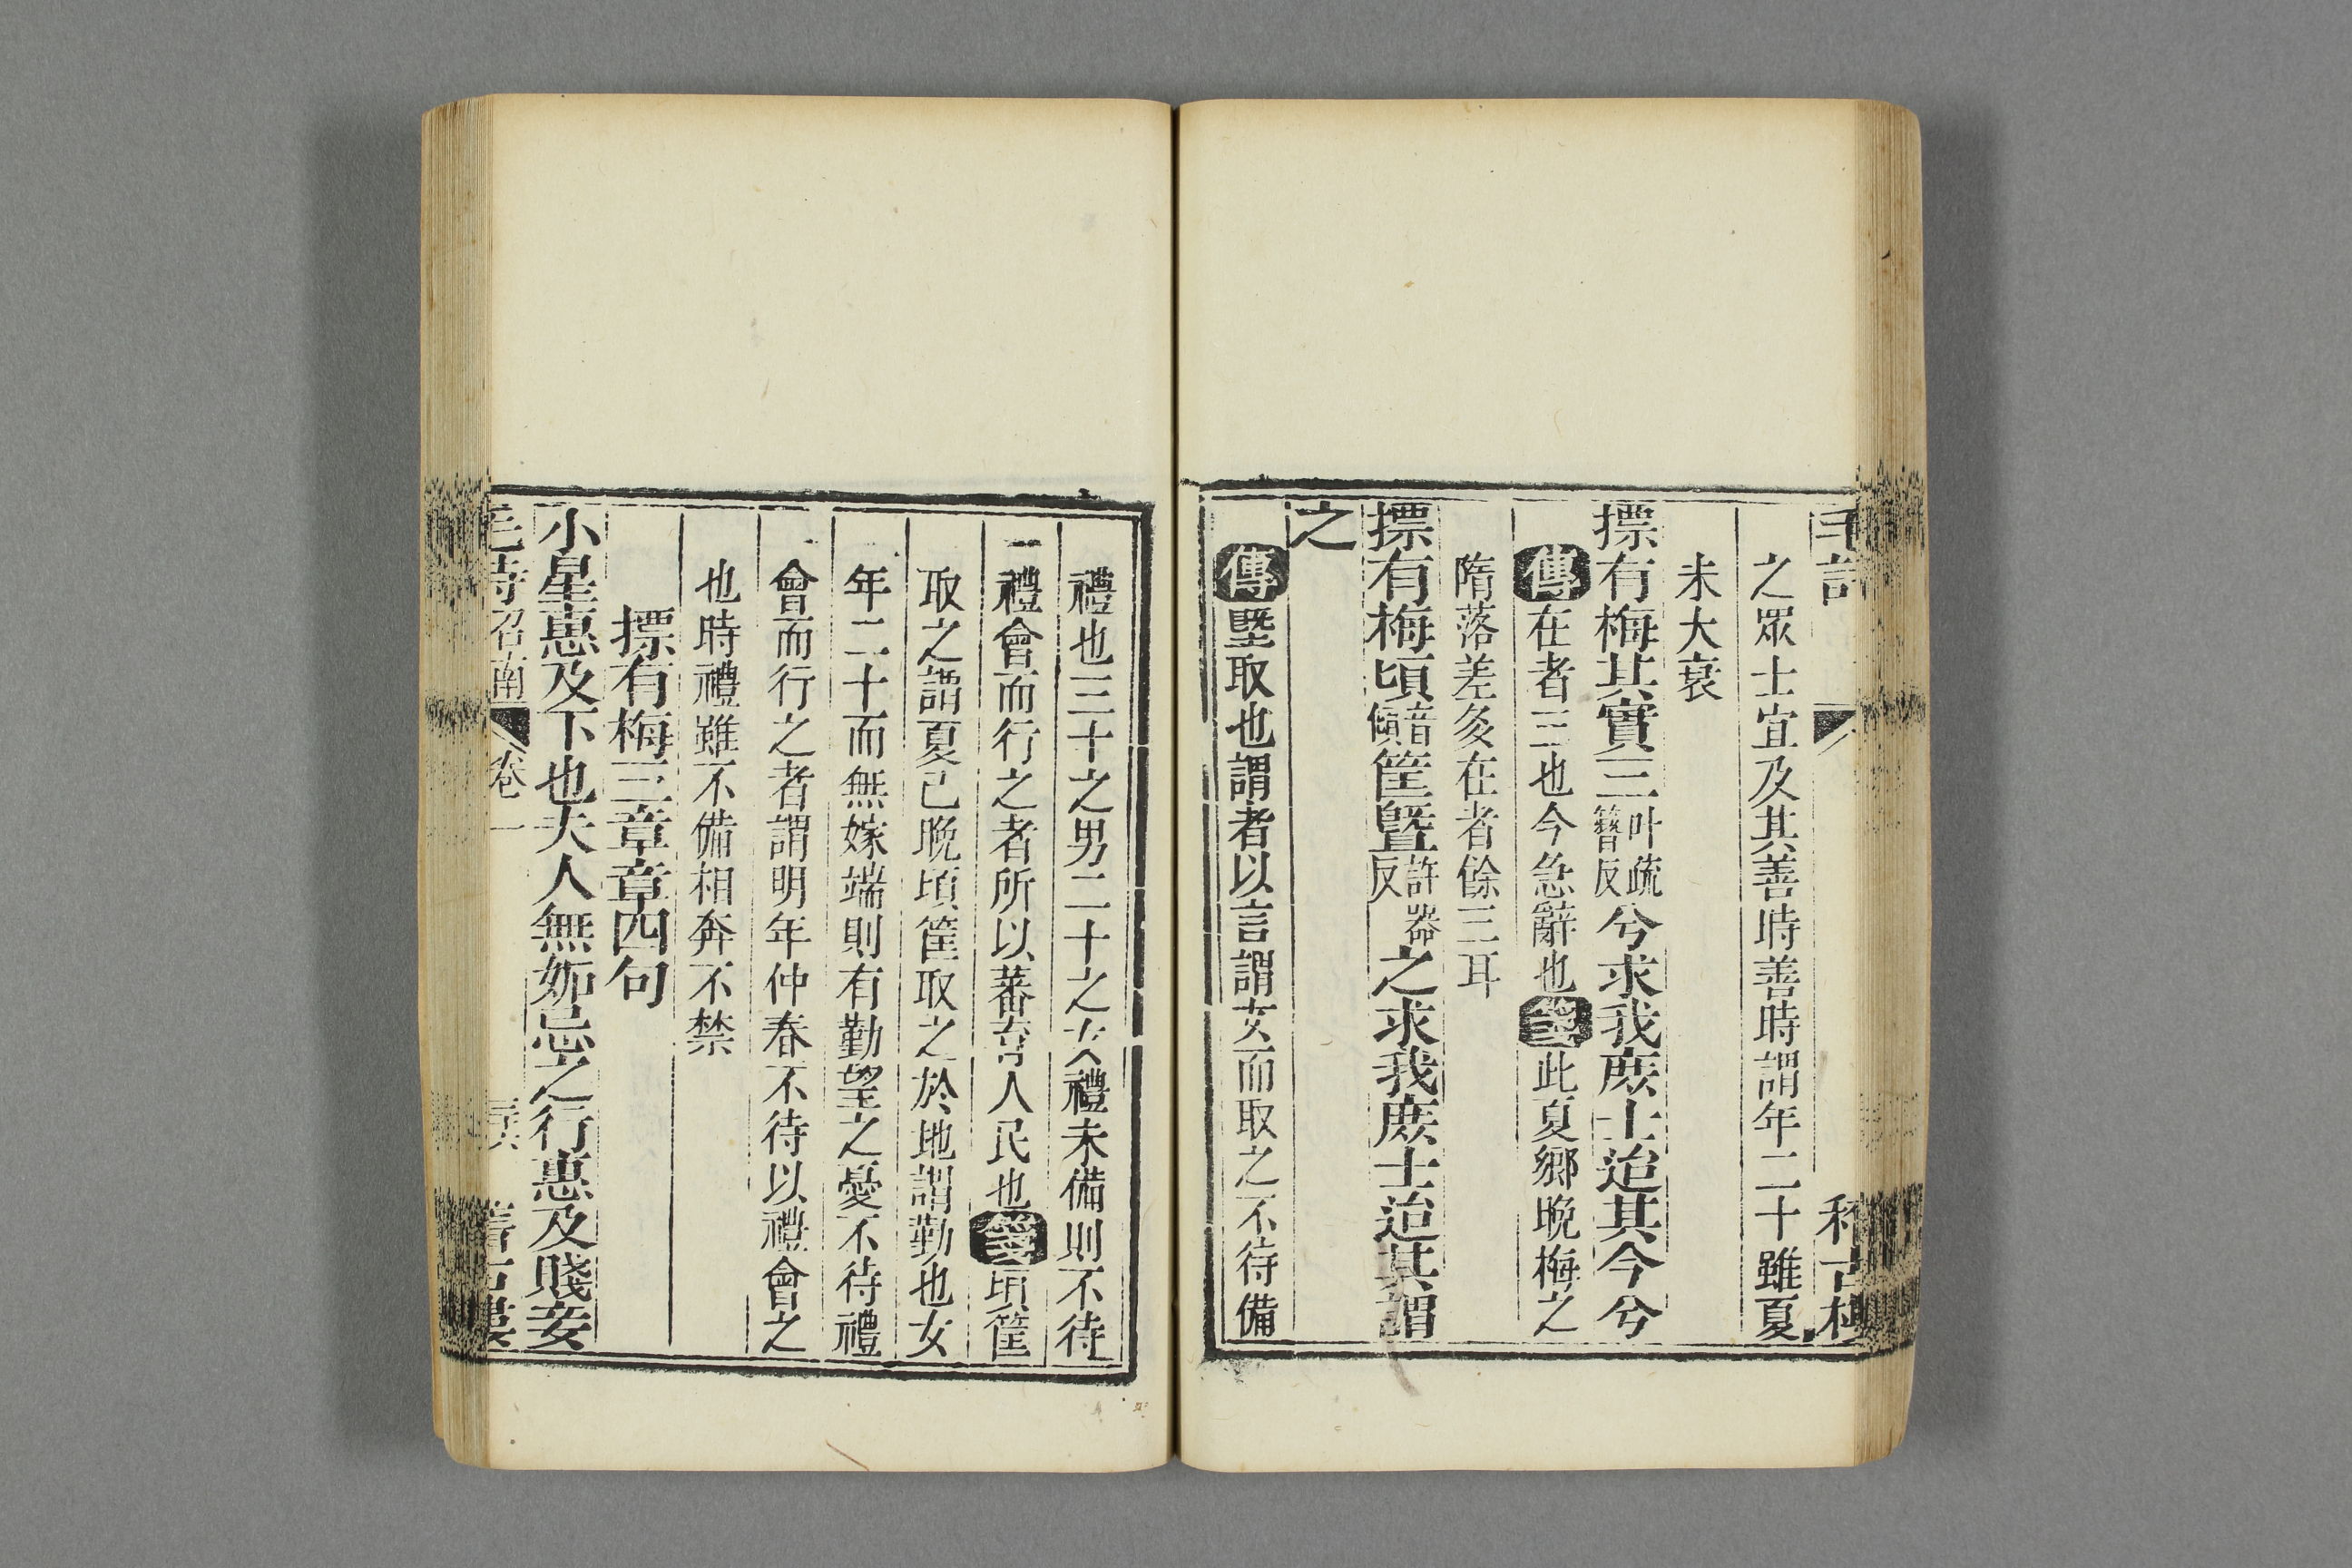 毛詩
稽古樓
之眾士宜及其善時善時謂年二十雖夏
未大衰
摽有梅其實三叶疏簪反兮求我庶士迨其今兮
傳在者三也今急辭也箋此夏鄉晚梅之
隋落差多在者餘三耳
摽有梅頃音傾筐墍許器反之求我庶士迨其謂
之
傳墍取也謂者以言謂女而取之不待備
禮也三十之男二十之女禮未備則不待
禮會而行之者所以蕃育人民也箋頃筐
取之謂夏已晚頃筐取之於地謂勤也女
年二十而無嫁端則有勤望之憂不待禮
會而行之者謂明年仲春不待以禮會之
也時禮雖不備相奔不禁
摽有梅三章章四句
小星惠及下也夫人無妬忌之行惠及賤妾
毛詩召南
卷一
稽古樓